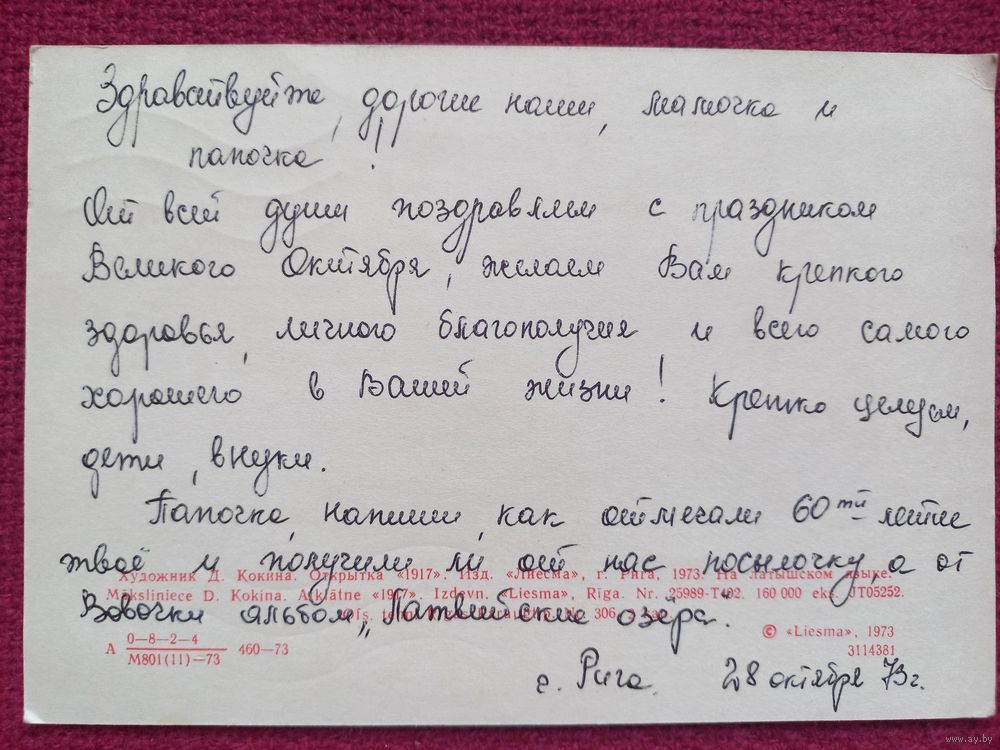 Здравствуйте, дорогие наши, мамочка и
папочка!
От всей души поздравляем с праздником
Великого Октября, желаем Вам крепкого
здоровья, личного благополучия и всего самого
хорошего в Вашей жизни! Крепко целуем,
дети, внуки.
Папочка, напиши, как отмечали 60-ти летие
твоё и получили ли от нас посылочку, а от
Художник Д. Кокина. Открытка «1917». Изд. «Лиесма», г. Рига, 1973. На латышском языке.
Māksliniece D. Kokina. Atklātne «1917». Izdevn. «Liesma», Rīga. Nr. 25989-T402. 160 000 eks. JT05252.
Вовочки альбом „Латвийские озёра.
306
© «Liesma», 1973
А 0—8—2—4
М801(11)—73 460—73
3114381
г. Рига. 28 октября 73 г.
www.ay.by